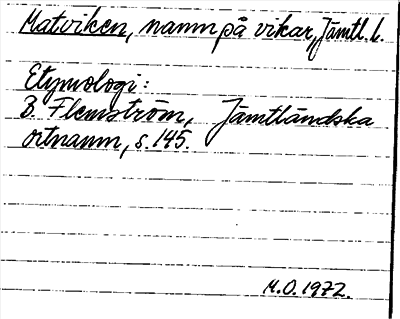 Matviken, namn på vikar, Jämtl. l.
Etymologi:
B. Flemström, Jämtländska
ortnamn, s. 145.
M.O. 1972.